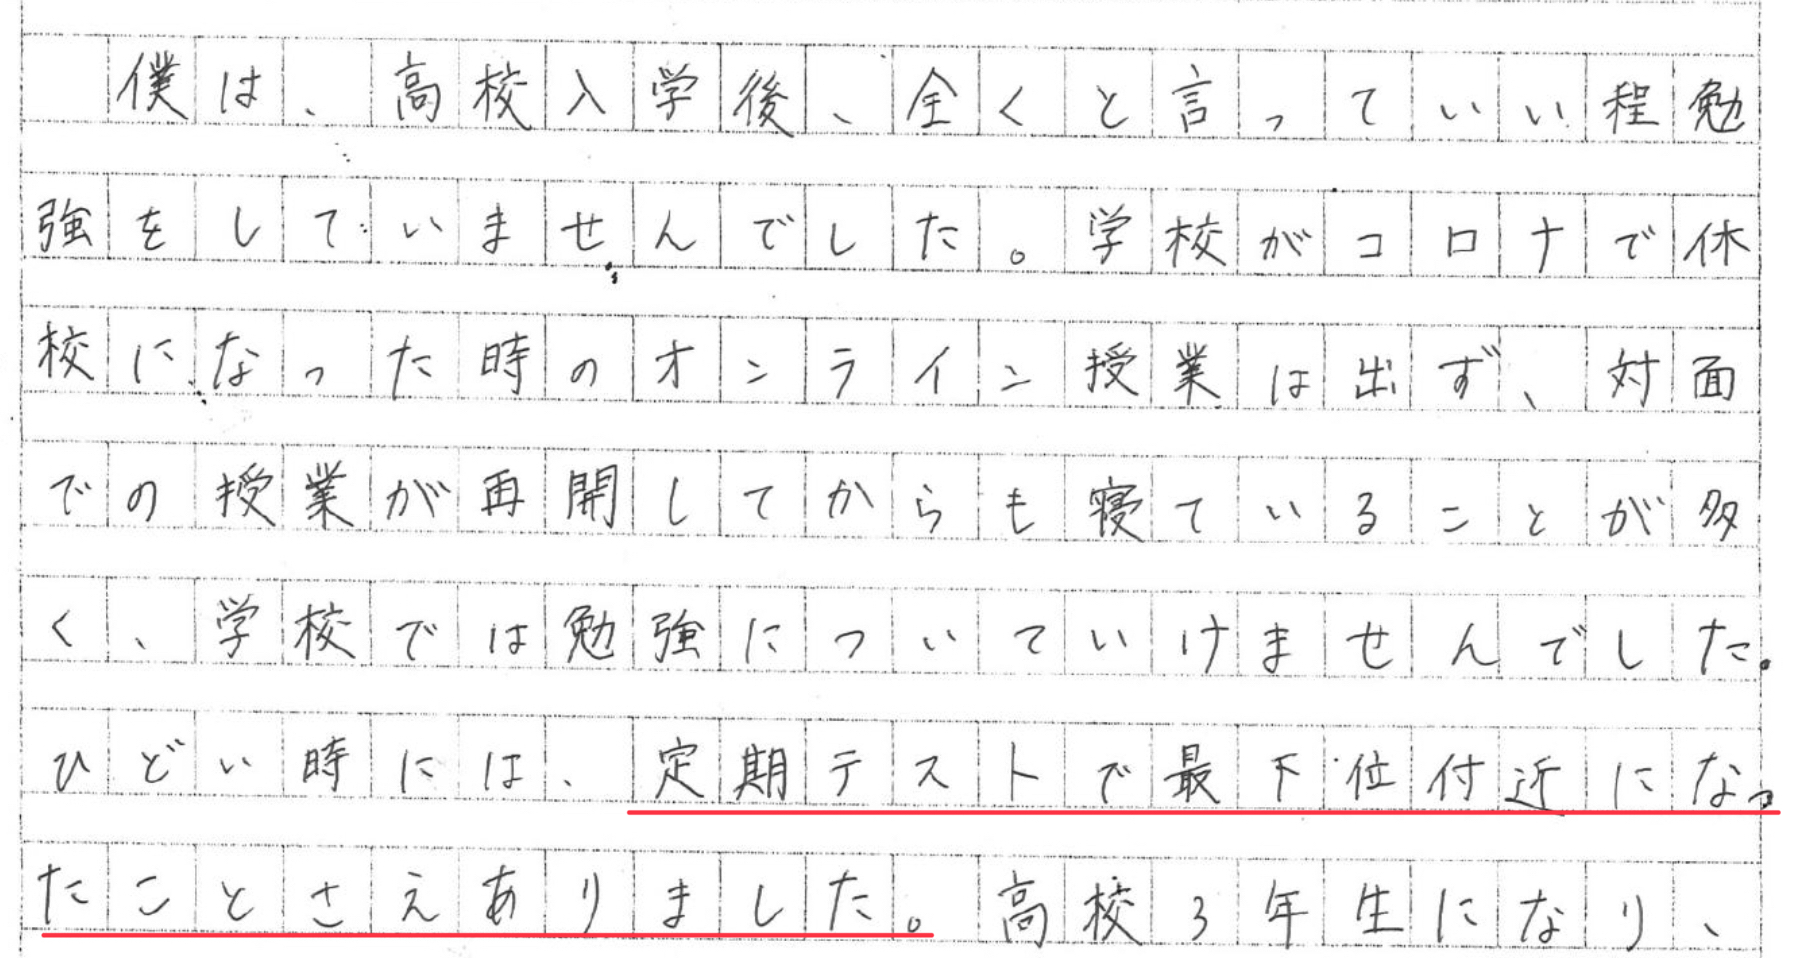 僕は、高校入学後、全くと言っていい程勉
強をしていませんでした。学校がコロナで休
校になった時のオンライン授業は出ず、対面
での授業が再開してからも寝ていることが多
く、学校では勉強についていけませんでした。
ひどい時には、定期テストで最下位付近になっ
たことさえありました。高校3年生になり、